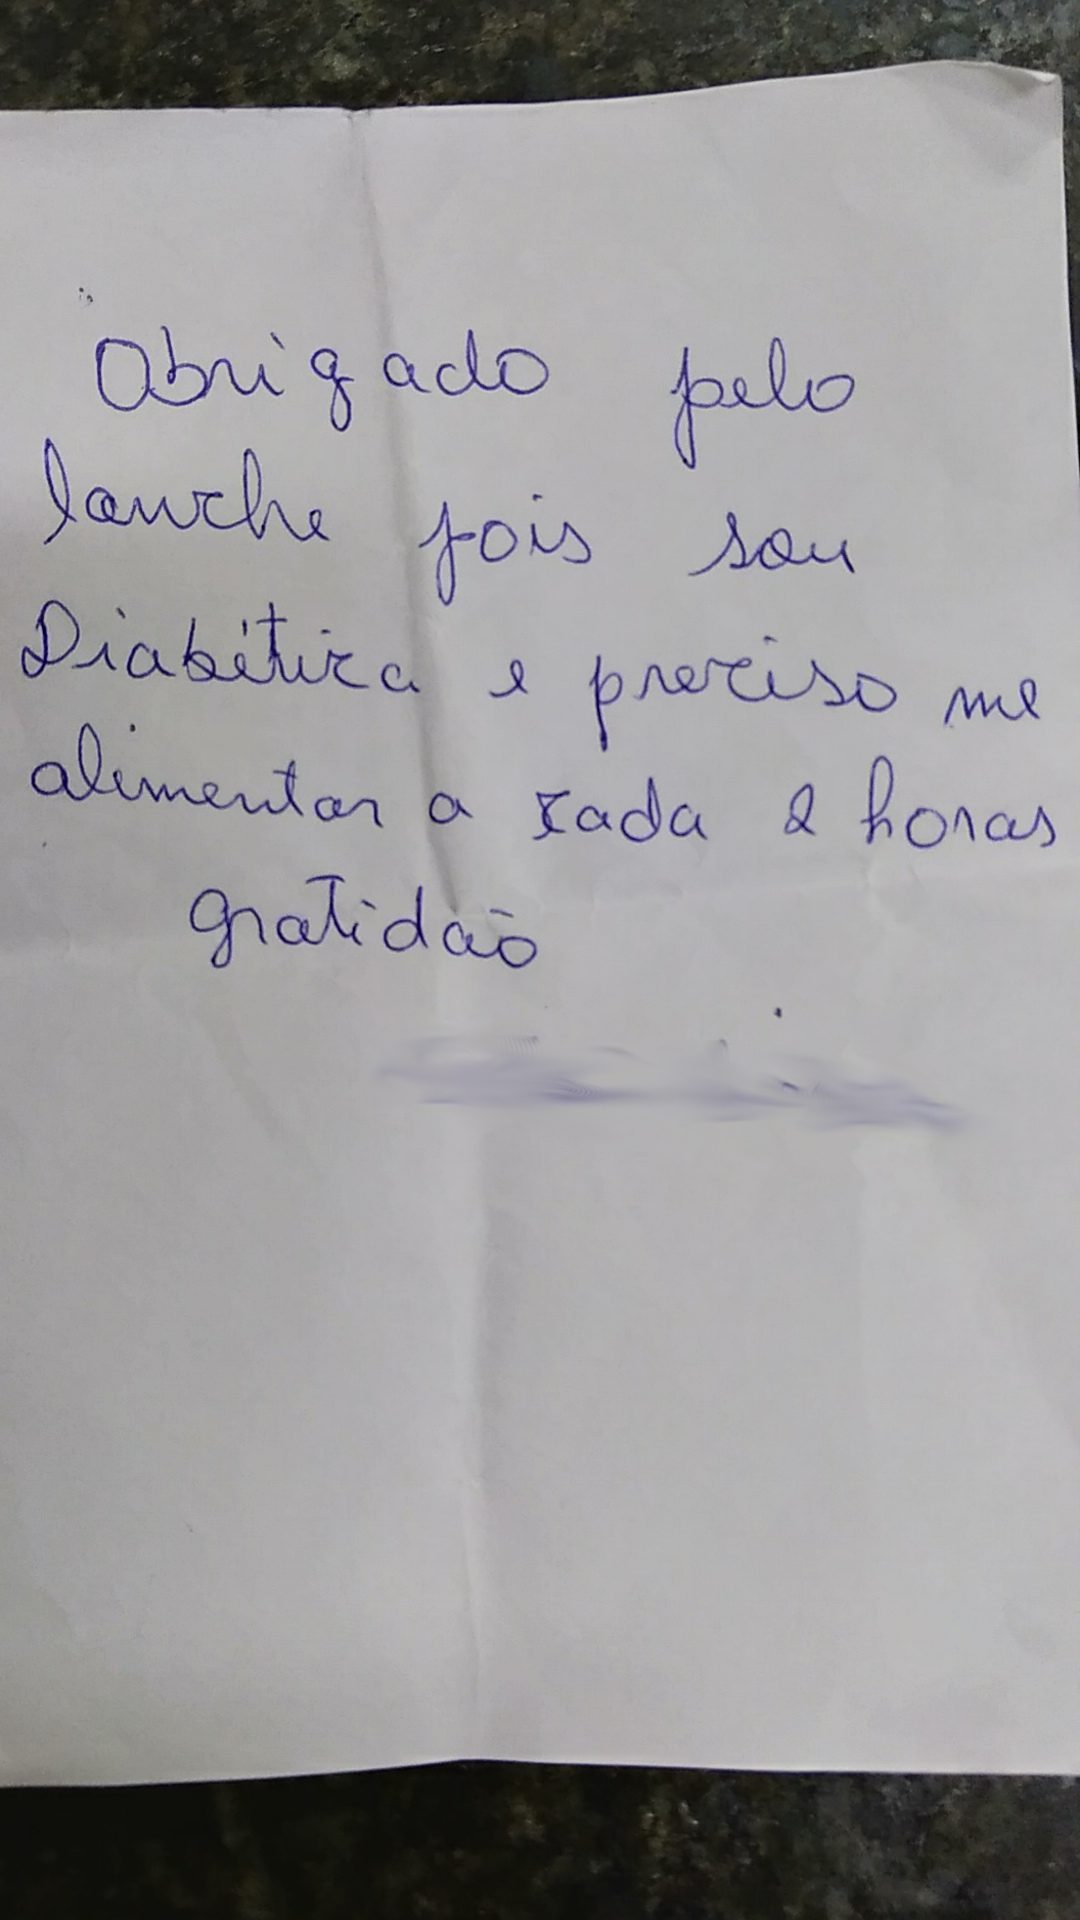 Obrigado pelo
lanche pois sou
Diabética e preciso me
alimentar a cada 2 horas
gratidão